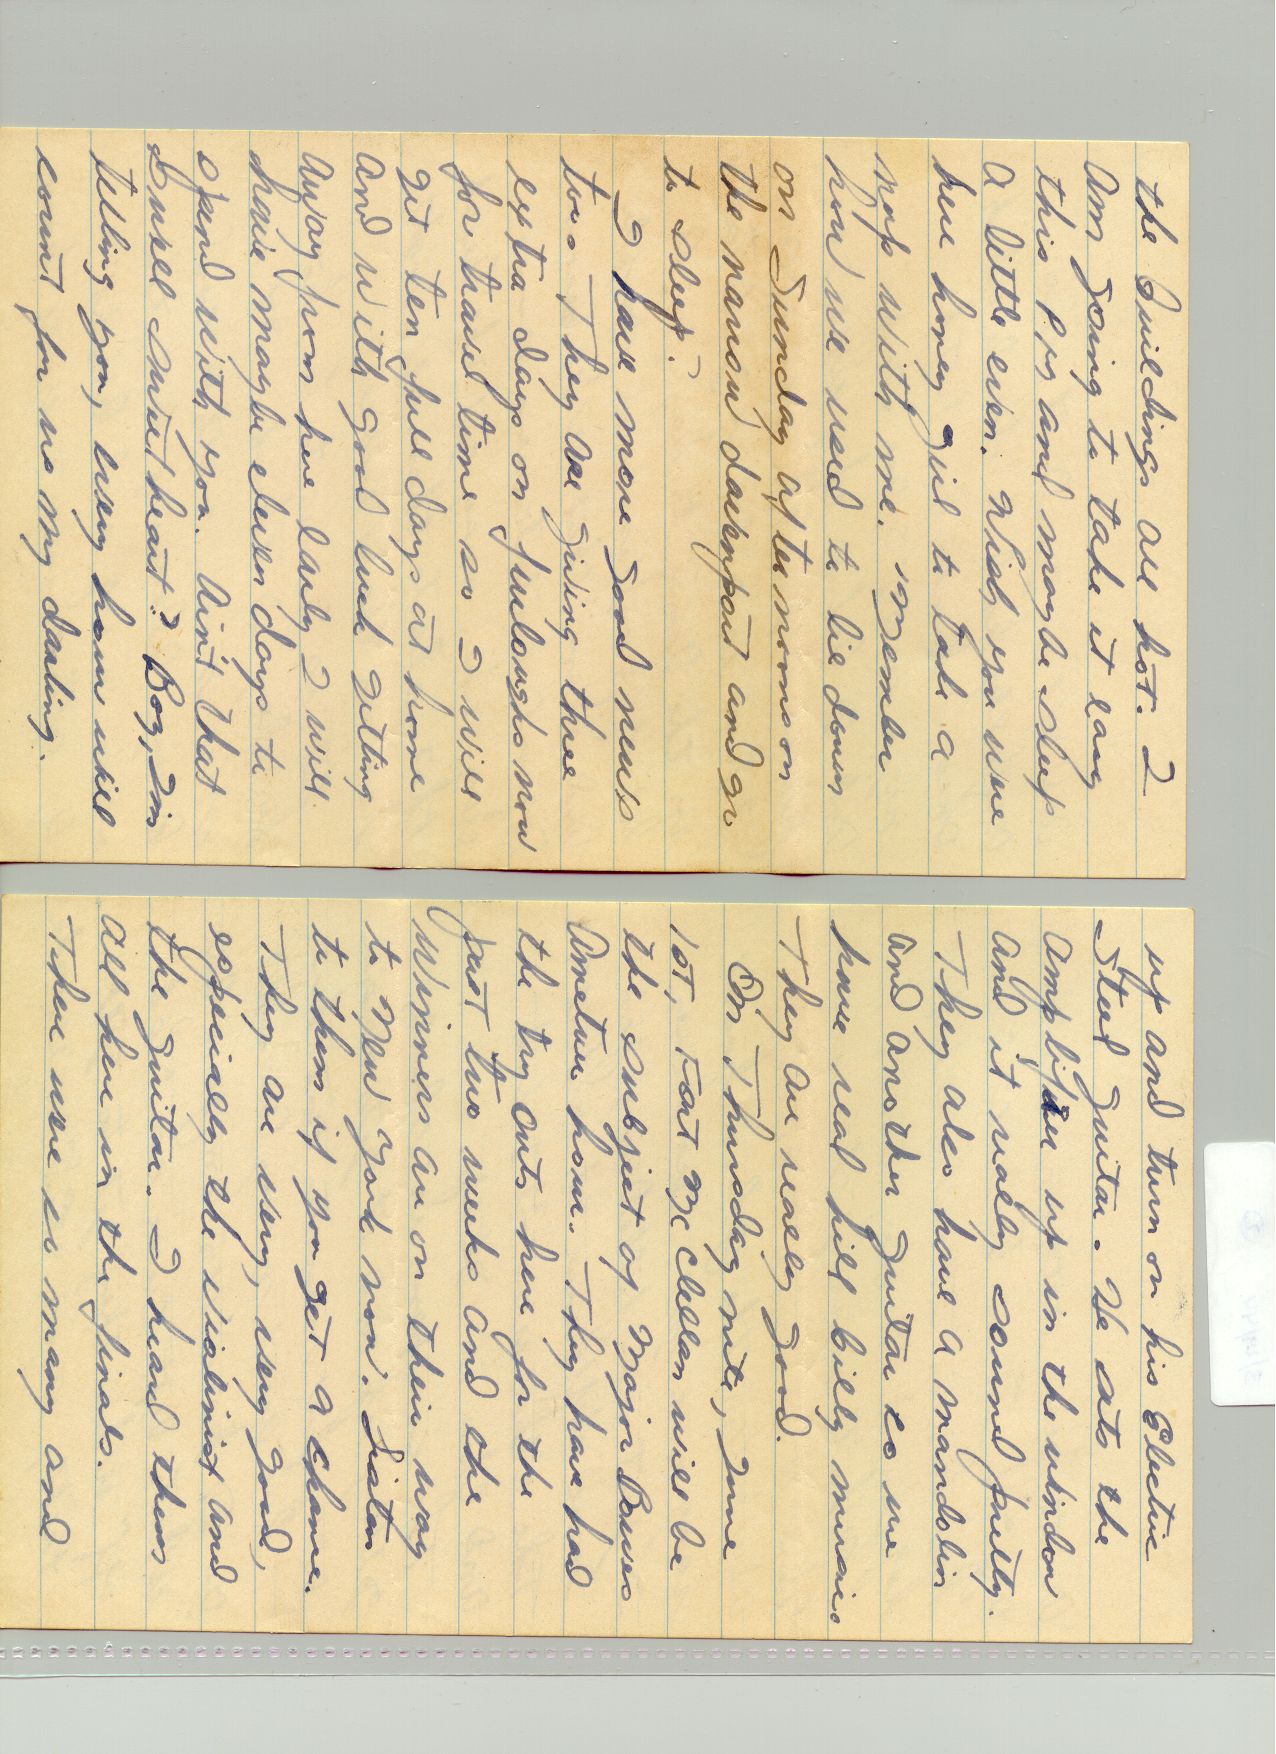 the buildings are hot. I
am going to take it easy
this P.M and maybe sleep
a little even. Wish you were
here honey girl to take a
nap with me. 'Member
how we used to lie down
on Sunday afternoons on
the narrow davenport and go
to sleep.
I have more good news
too. They are giving three
extra days on furloughs now
for travel time so I will
get ten full days at home
and with good luck getting
away from here early I will
have maybe eleven days to
spend with you. Ain't that
swell sweetheart? Boy, I'm
telling you, every hour will
count for us my darling.
up and turn on his Electric
Steel Guitar. He sets the
amplifier up in the window
and it really sounds pretty.
They also have a mandolin
and another guitar so we
have real hill billy music.
They are really good.
On Thursday nite, June
1st, Fort McClellan will be
the subject of Major Bowes
Ametur hour. They have had
the try outs here for the
past two weeks and the
Winners are on their way
to New York now. Listen
to them if you get a chance.
They are very, very good,
especially the violinist and
the guitar. I heard them
all here in the finals.
There were so many and